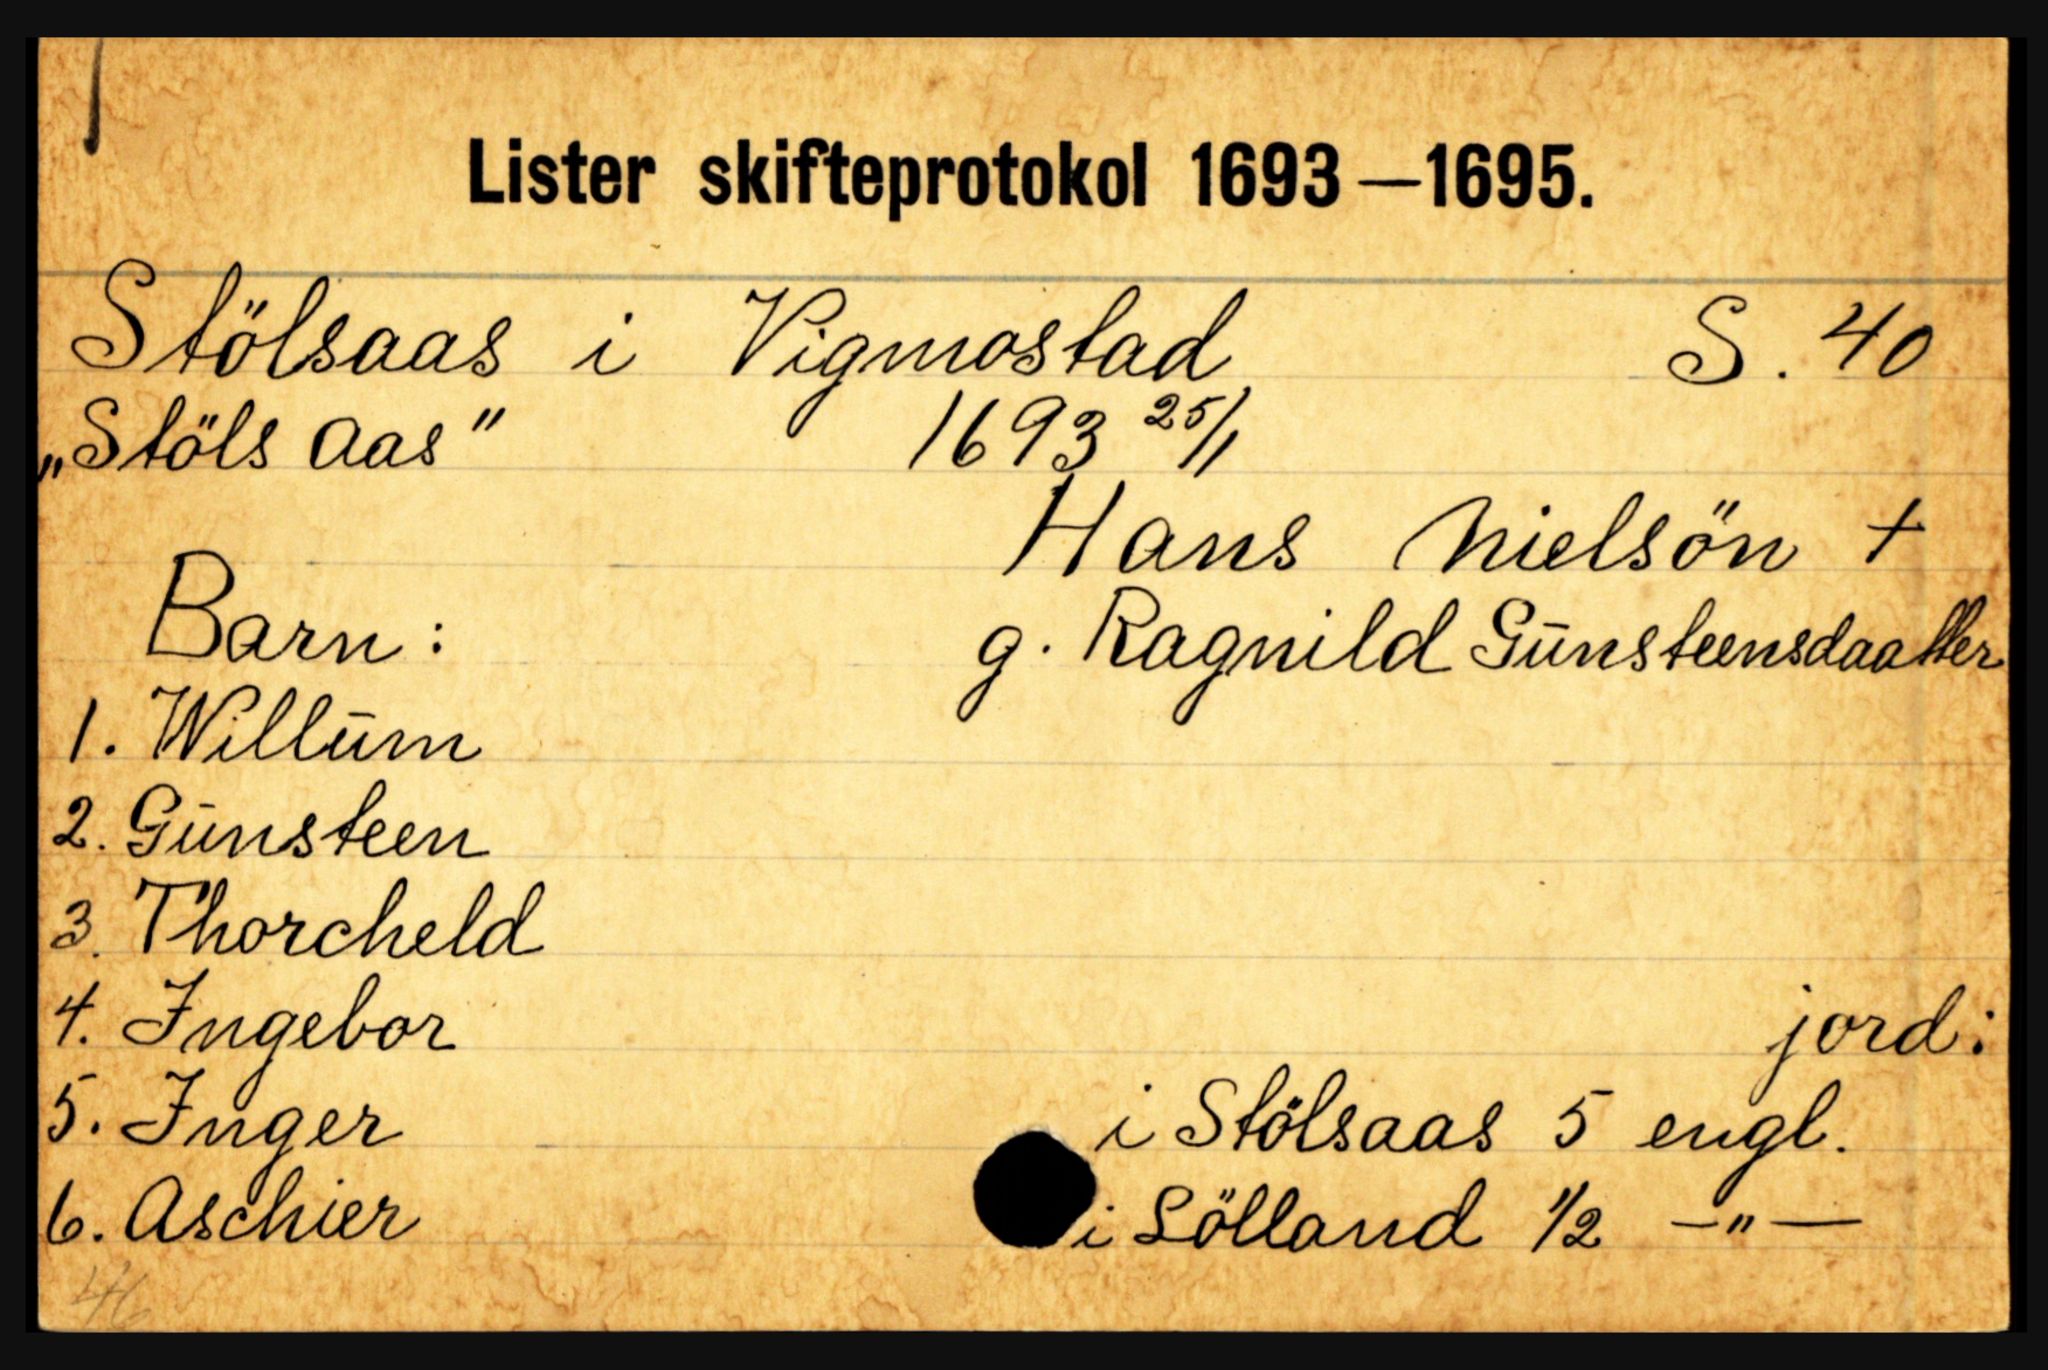 Lister skifteprotokol 1693—1695.
Stölsaas i Vigmostad S. 40
„Stöls Aas" 1693 25/1
Hans Nielsön +
Barn: g. Ragnild Gūnsteensdaatter
1. Willūm
2. Gūnsteen
3. Thorcheld
4. Ingebor jord:
5. Inger i Stölsaas 5 engl.
6. Aschier i Lölland 1/2 —"—
46